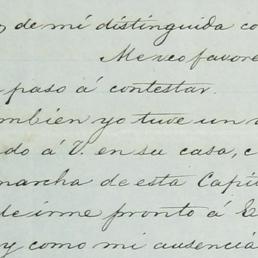 de mi distinguida co
Me veo favore
paso á contestar.
mbien yo tuve un
do á V. en su casa, c
marcha de esta Capi
de irme pronto á
y como mi ausencia